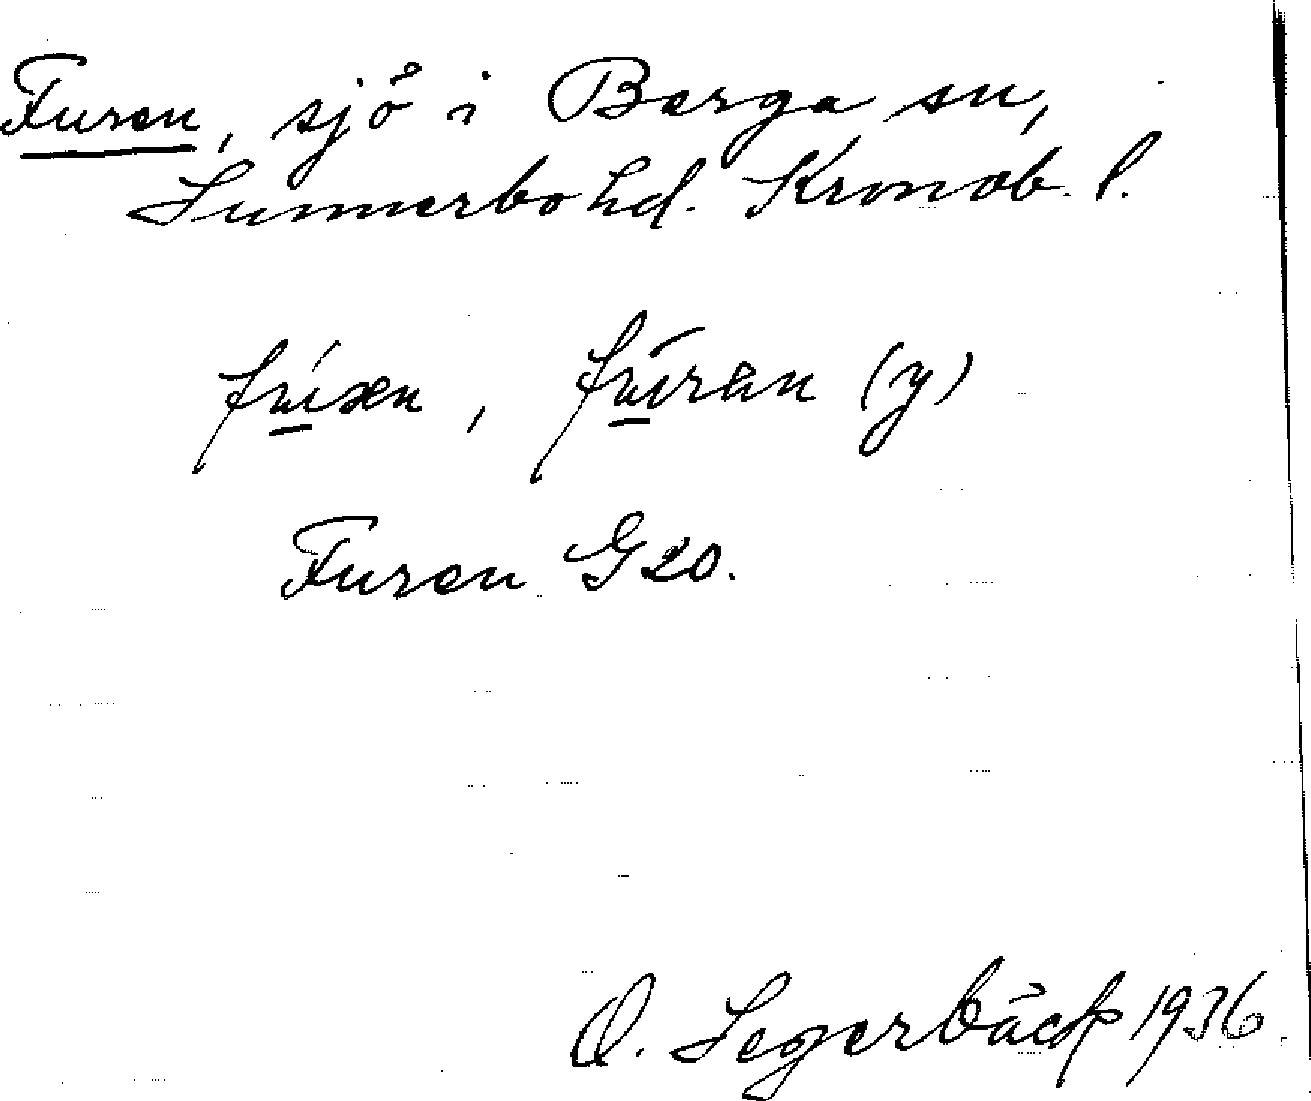 Furen, sjö i Berga sn,
Sunnerbo hd. Kronob. l.
(y)
Furen G20.
O. Segerbäck 1936